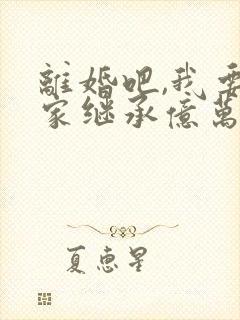 離婚吧,我要
家继承億萬
夏惠星